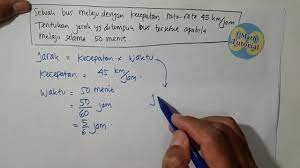 Sebuah bus melaju dengan kecepatan rata-rata 45 km/jam.
Tentukan jarak yg ditempuh bus tersebut apabila
melaju selama 50 menit
Jarak = Kecepatan x Waktu
Kecepatan = 45 km/jam.
Waktu = 50 menit
= 50/60 jam
= 5/6 jam
J
Tutorial